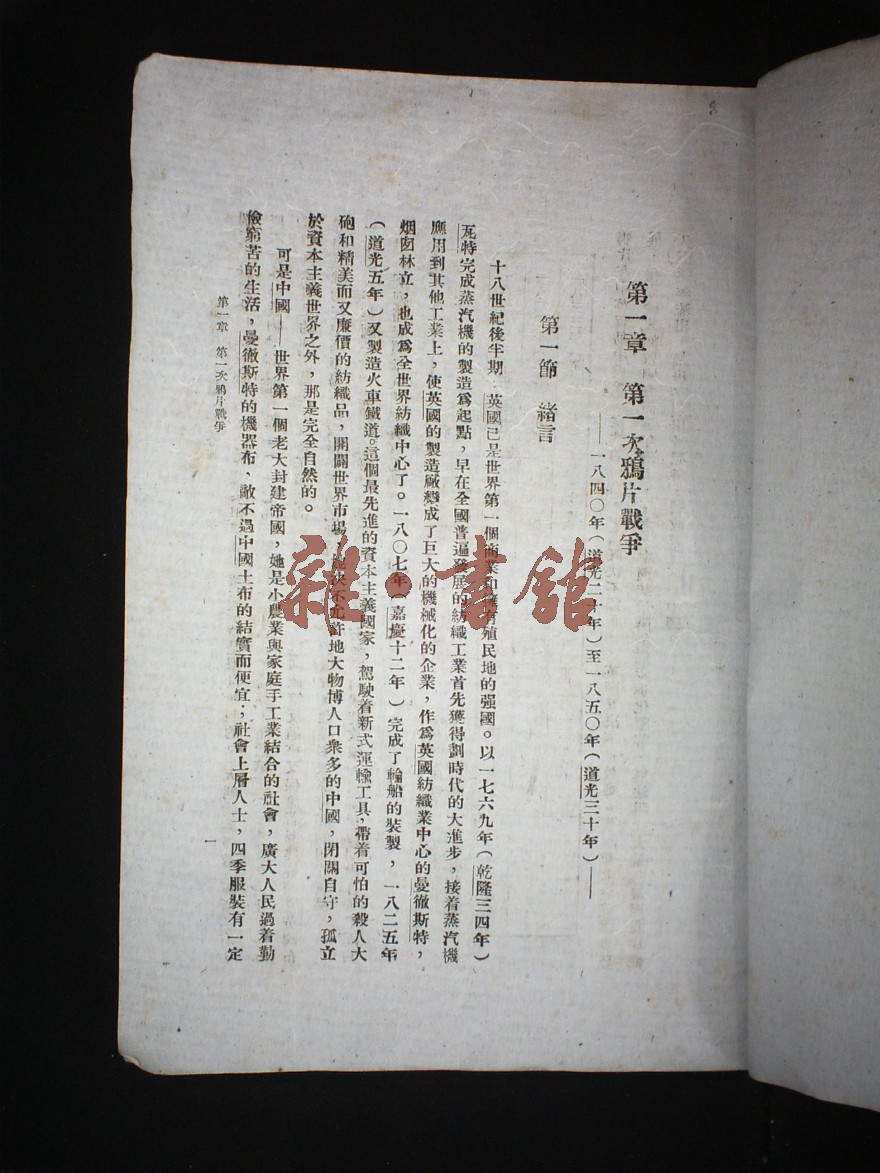 第一章　第一次鴉片戰爭
——一八四〇年（道光二十年）至一八五〇年（道光三十年）——
第一節　緒言
十八世紀後半期，英國已是世界第一個商業和擁有殖民地的强國。以一七六九年（乾隆三四年）
瓦特完成蒸汽機的製造爲起點，早在全國普遍發展的紡織工業首先獲得劃時代的大進步，接着蒸汽機
應用到其他工業上，使英國的製造廠變成了巨大的機械化的企業，作爲英國紡織業中心的曼徹斯特，
烟囱林立，也成爲全世界紡織中心了。一八〇七年（嘉慶十二年）完成了輪船的裝製，一八二五年
（道光五年）又製造火車鐵道。這個最先進的資本主義國家，駕駛着新式運輸工具，帶着可怕的殺人大
砲和精美而又廉價的紡織品，開闢世界市場，她決不允許地大物博人口衆多的中國，閉關自守，孤立
於資本主義世界之外，那是完全自然的。
可是中國——世界第一個老大封建帝國，她是小農業與家庭手工業結合的社會，廣大人民過着勤
儉窮苦的生活，曼徹斯特的機器布，敵不過中國土布的結實而便宜；社會上層人士，四季服裝有一定
第一章　第一次鴉片戰爭
一
雜·書館